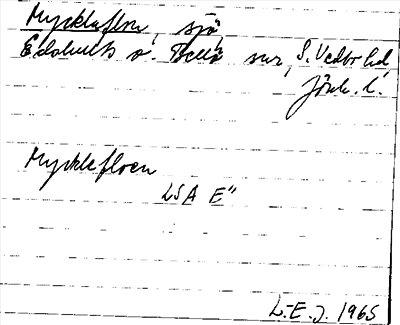 Myckleflon, sjö
Edshults o. Bellö snr, S. Vedbo hd,
Jönk. l.
Mycklefloen
LSA E"
L.E.J. 1965